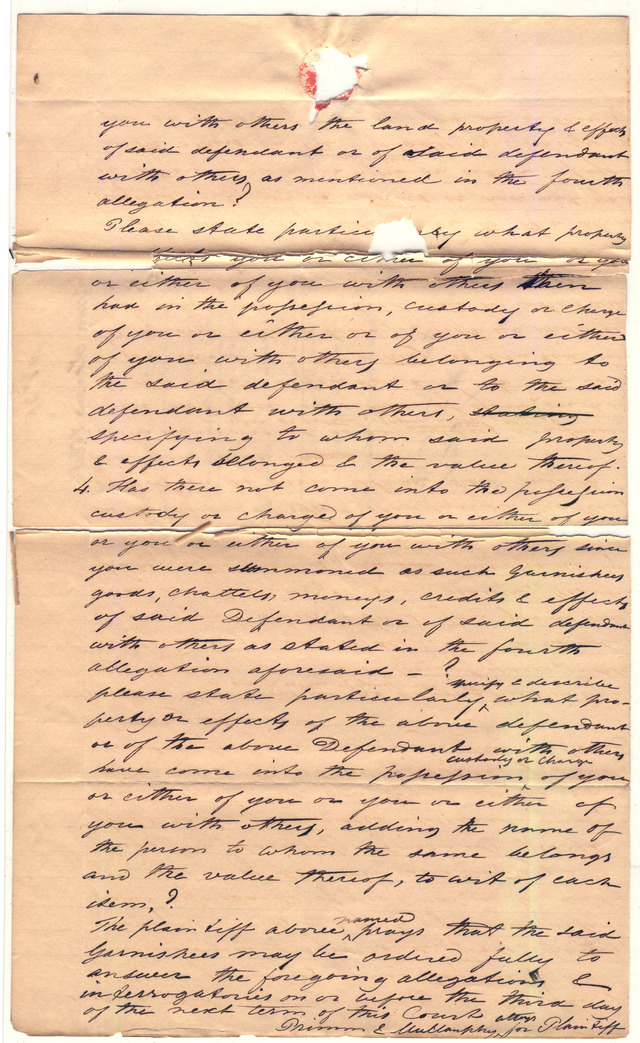 you with others the land property & effects
of said defendant or of said defendant
with others as mentioned in the fourth
allegation?
Please state particularly what property
you or either of you or you
or either of you with others then
had in the possession, custody or charge
of you or either or of you or either
of you with others belonging to
the said defendant or to the said
defendant with others, stating
specifying to whom said property
& effects belonged & the value thereof.
4. Has there not come into the possession
custody or charge of you or either of you
or you or either of you with others since
you were summoned as such Garnishees
goods, chattels, moneys, credits & effects
of said Defendant or of said defendant
with others as stated in the fourth
allegation aforesaid - ?
specify & describe
please state particularly, what pro-
perty or effects of the above defendant
or of the above Defendant with others
custody or charge
have come into the possession of you
or either of you or you or either of
you with others, adding the name of
the person to whom the same belongs
and the value thereof, to wit of each
item,?
The plaintiff above named prays that the said
Garnishees may be ordered fully to
answer the foregoing allegations &
interrogatories on or before the third day
of the next term of this Court
Primm & Mullanphy, attys for Plaintiff